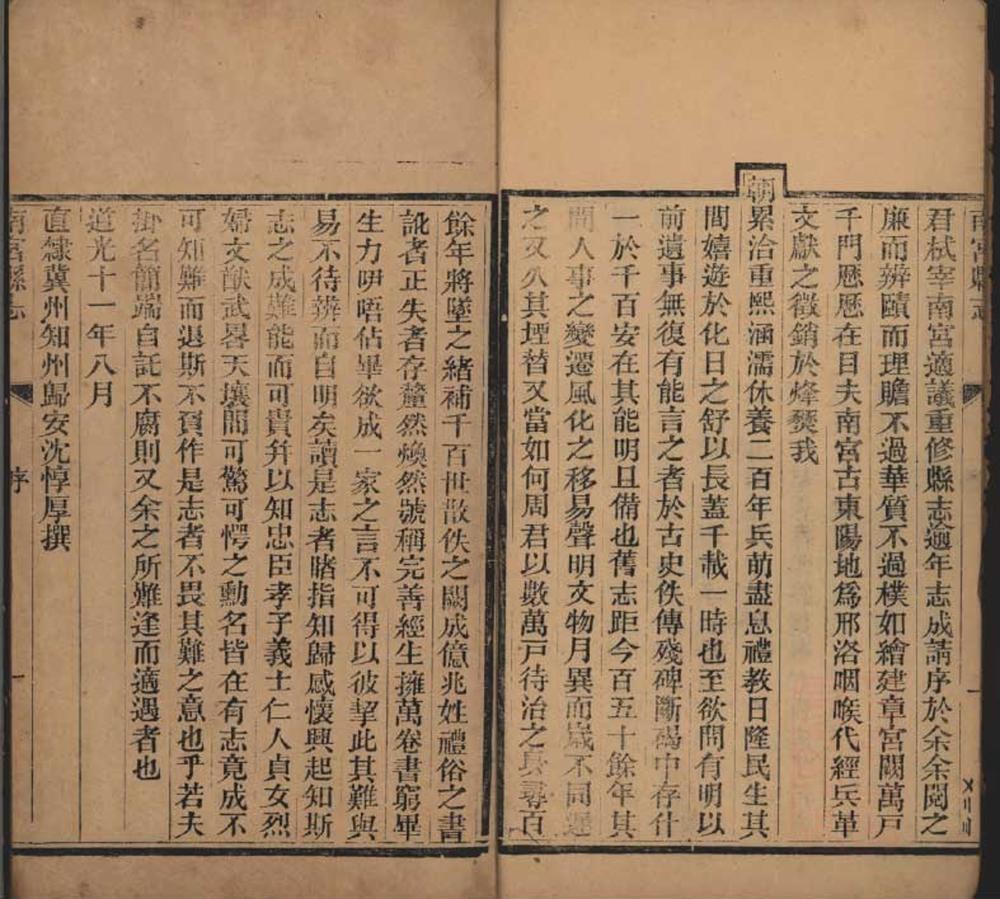 南宮縣志
君栻宰南宮適議重修縣志逾年志成請序於余余閱之
廉而辨賾而理贍不過華質不過樸如繪建章宮闕萬戶
千門歷歷在目夫南宮古東陽地為邢洺咽喉代經兵革
文獻之徵銷於烽燹我
朝累洽重熙涵濡休養二百年兵萌盡息禮教日隆民生其
間嬉遊於化日之舒以長蓋千載一時也至欲問有明以
前遺事無復有能言之者於古史佚傳殘碑斷碣中存什
一於千百安在其能明且備也舊志距今百五十餘年其
間人事之變遷風化之移易聲明文物月異而歲不同遲
之又久其堙替又當如何周君以數萬戶待治之具尋百
餘年將墜之緒補千百世散佚之闕成億兆姓禮俗之書
訛者正失者存釐然煥然號稱完善經生擁萬卷書窮畢
生力咿唔佔畢欲成一家之言不可得以彼挈此其難與
易不待辨而自明矣讀是志者睹指知歸感懷興起知斯
志之成難能而可貴并以知忠臣孝子義士仁人貞女烈
婦文猷武畧天壤間可驚可愕之勳名皆在有志竟成不
可知難而退斯不負作是志者不畏其難之意也乎若夫
掛名簡端自託不腐則又余之所難逢而適遇者也
道光十一年八月
直隸冀州知州歸安沈惇厚撰
南宮縣志
序
一